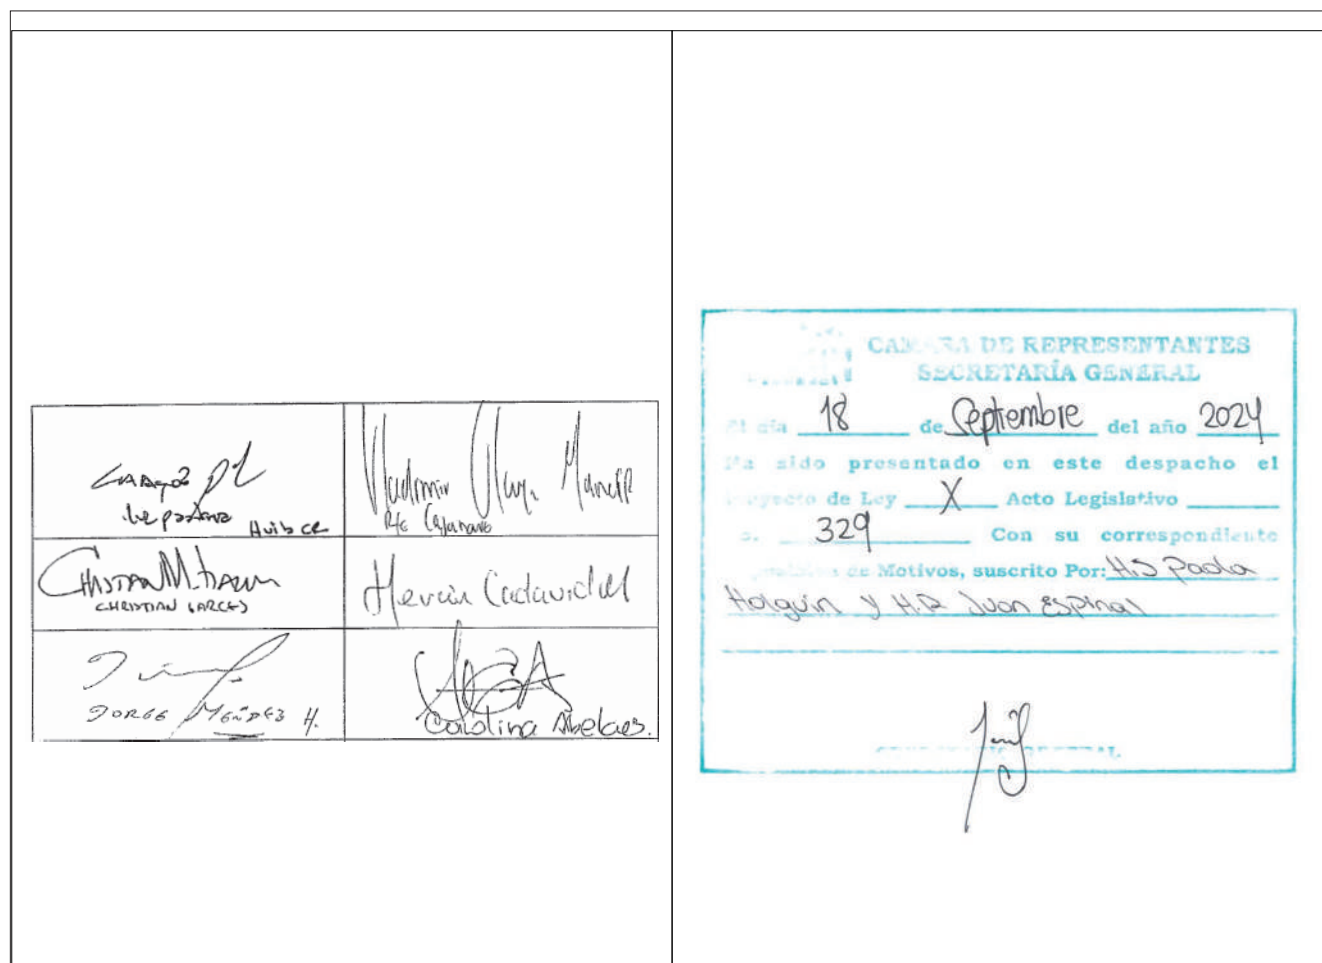 Huila CR
Vladimir Olaya Mancipe
Rte Casanare
CHRISTIAN GARCES
Hernán Cadavid
JORGE MÉNDEZ H.
Carolina Arbelaez.
CAMARA DE REPRESENTANTES
SECRETARÍA GENERAL
El día 18 de Septiembre del año 2024
Ha sido presentado en este despacho el
Proyecto de Ley X Acto Legislativo
329 Con su correspondiente
de Motivos, suscrito Por: H.S Paola
Holguin y H.R Juan Espinal
SECRETARIO GENERAL